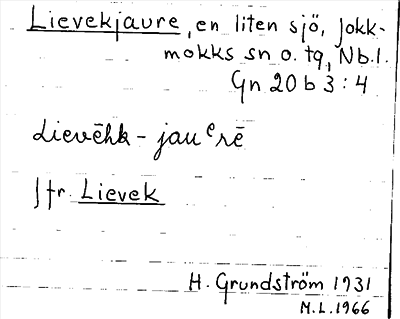 Lievekjaure, en liten sjö, Jokk-
mokks sn o. tg, Nb.l.
Gn 20 b 3 : 4
Lievēhk - jauᵉrē
Jfr. Lievek
H. Grundström 1931
M.L. 1966